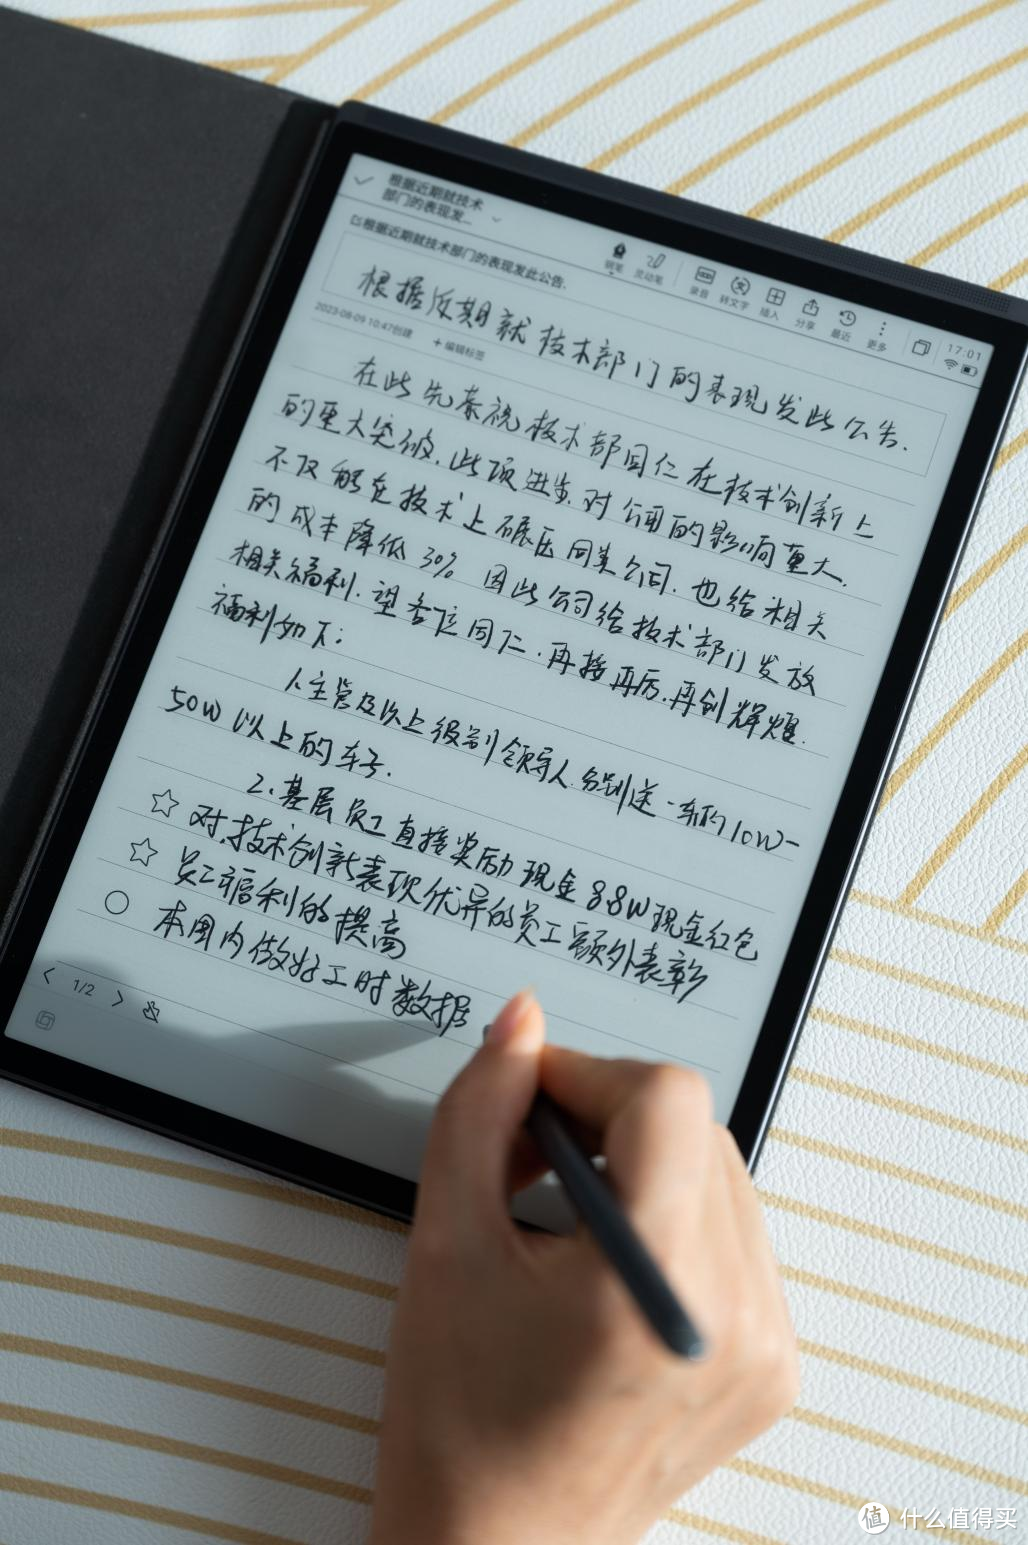 根据近期就技术
部门的表现发...
钢笔
灵动笔
录音
转文字
插入
分享
最近
更多
17:01
根据近期就技术部门的表现发此公告.
根据近期就技术部门的表现发此公告.
2023-08-09 10:47创建
+ 编辑标签
在此先恭祝技术部同仁在技术创新上
的重大突破.此项进步.对公司的影响重大.
不仅能在技术上碾压同类公司.也给相关
的成本降低30% 因此公司给技术部门发放
相关福利.望各位同仁.再接再厉.再创辉煌.
福利如下:
1.主管及以上级别领导人.分别送一车的10W-
50W以上的车子.
2.基层员工直接奖励现金88W现金红包
☆ 对技术创新表现优异的员工额外表彰
☆ 员工福利的提高
○ 本周内做好工时数据
< 1/2 >
值 什么值得买